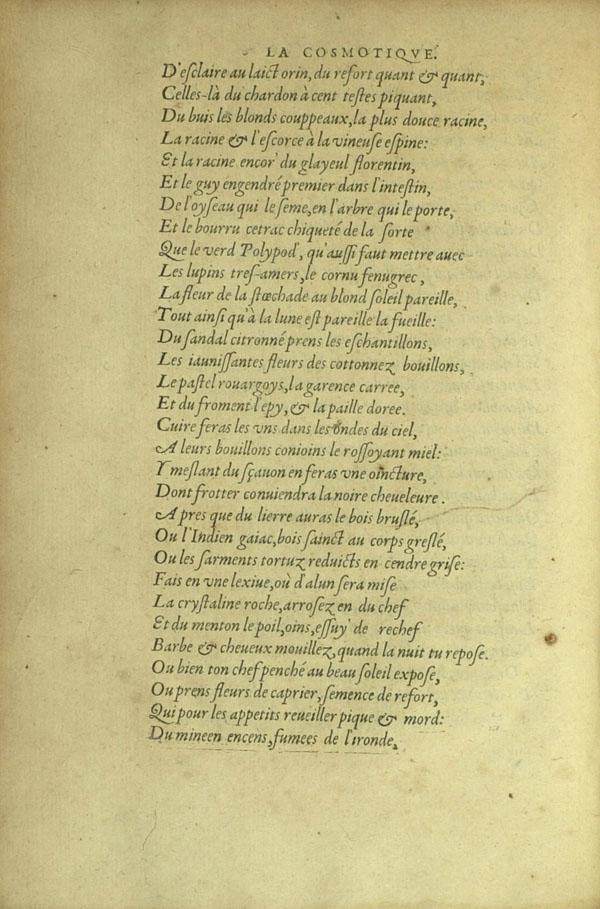 LA COSMOTIQVE.
D'esclaire au laict orin, du refort quant & quant,
Celles-là du chardon à cent testes piquant,
Du buis les blonds couppeaux, la plus douce racine,
La racine & l'escorce à la vineuse espine:
Et la racine encor' du glayeul florentin,
Et le guy engendré premier dans l'intestin,
De l'oyseau qui le seme, en l'arbre qui le porte,
Et le bourru cetrac chiqueté de la sorte
Que le verd Polypod', qu'aussi faut mettre auec
Les lupins tres-amers, le cornu fenugrec,
La fleur de la stœchade au blond soleil pareille,
Tout ainsi qu'à la lune est pareille la fueille:
Du sandal citronné prens les eschantillons,
Les iaunissantes fleurs des cottonnez bouillons,
Le pastel rouargoys, la garence carree,
Et du froment l'epy, & la paille doree.
Cuire feras les vns dans les ondes du ciel,
A leurs bouillons conioins le rossoyant miel:
Y meslant du sçauon en feras vne oincture,
Dont frotter conuiendra la noire cheueleure.
Apres que du lierre auras le bois bruslé,
Ou l'Indien gaiac, bois sainct au corps greslé,
Ou les sarments tortuz reduicts en cendre grise:
Fais en vne lexiue, où d'alun sera mise
La crystaline roche, arrosez en du chef
Et du menton le poil, oins, essuy' de rechef
Barbe & cheueux mouillez, quand la nuit tu repose.
Ou bien ton chef penché au beau soleil expose,
Ou prens fleurs de caprier, semence de refort,
Qui pour les appetits reueiller pique & mord:
Du mineen encens, fumees de l'ironde,